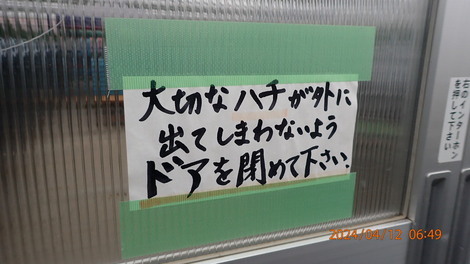 大切なハチが外に
出てしまわないよう
ドアを閉めて下さい.
右のインターホン
を押して下さい
2024/04/12 06:49